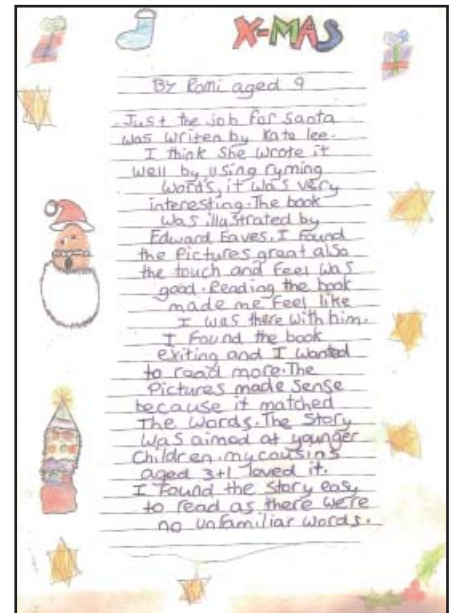 X-MAS
BY Romi aged 9
Just the job for Santa
was writen by Kate lee.
I think she wrote it
well by using ryming
words, it was very
interesting. The book
was illastrated by
Edward Eaves. I found
the Pictures great also
the touch and feel was
good. Reading the book
made me feel like
I was there with him.
I found the book
exiting and I wanted
to read more. The
Pictures made sense
because it matched
The words. The Story
was aimed at younger
Children. my cousins
aged 3+1 loved it.
I found the story easy
to read as there were
no unfamiliar words.